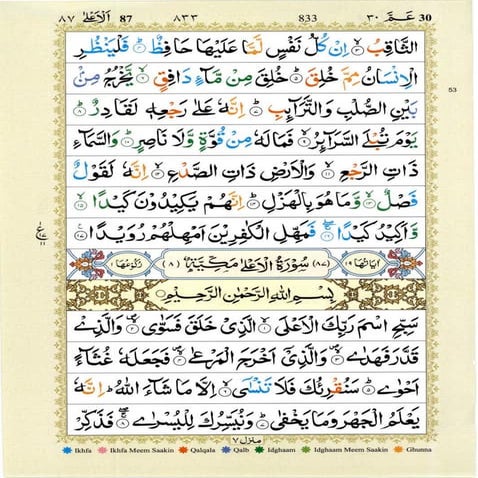 ٨٧ اَلۡاَعۡلٰى 87 ٨٣٣ 833 عَمَّ ٣٠ 30
الثَّاقِبُ ۙ‏﴿۳﴾ اِنۡ كُلُّ نَفۡسٍ لَّمَّا عَلَيۡهَا حَافِظٌ ؕ‏﴿۴﴾ فَلۡيَنۡظُرِ
الۡاِنۡسَانُ مِمَّ خُلِقَ ؕ‏﴿۵﴾ خُلِقَ مِنۡ مَّآءٍ دَافِقٍ ۙ‏﴿۶﴾ يَّخۡرُجُ مِنۡۢ
بَيۡنِ الصُّلۡبِ وَالتَّرَآٮِٕبِ ؕ‏﴿۷﴾ اِنَّهٗ عَلٰى رَجۡعِهٖ لَقَادِرٌ ؕ‏﴿۸﴾
يَوۡمَ تُبۡلَى السَّرَآٮِٕرُ ۙ‏﴿۹﴾ فَمَا لَهٗ مِنۡ قُوَّةٍ وَّلَا نَاصِرٍ ؕ‏﴿۱۰﴾ وَالسَّمَآءِ
ذَاتِ الرَّجۡعِ ۙ‏﴿۱۱﴾ وَالۡاَرۡضِ ذَاتِ الصَّدۡعِ ۙ‏﴿۱۲﴾ اِنَّهٗ لَقَوۡلٌ
فَصۡلٌ ۙ‏﴿۱۳﴾ وَّمَا هُوَ بِالۡهَزۡلِ ؕ‏﴿۱۴﴾ اِنَّهُمۡ يَكِيۡدُوۡنَ كَيۡدًا ۙ‏﴿۱۵﴾
وَّاَكِيۡدُ كَيۡدًا ۚۖ‏﴿۱۶﴾ فَمَهِّلِ الۡكٰفِرِيۡنَ اَمۡهِلۡهُمۡ رُوَيۡدًا‏﴿۱۷﴾
اٰيَاتُهَا ١٩ (٨٧) سُوۡرَةُ الۡاَعۡلٰى مَكِّيَّةٌ (٨) رُكُوۡعُهَا ١
بِسۡمِ اللّٰهِ الرَّحۡمٰنِ الرَّحِيۡمِ
سَبِّحِ اسۡمَ رَبِّكَ الۡاَعۡلَى ۙ‏﴿۱﴾ الَّذِىۡ خَلَقَ فَسَوّٰى ۙ‏﴿۲﴾ وَالَّذِىۡ
قَدَّرَ فَهَدٰى ۙ‏﴿۳﴾ وَالَّذِىۡۤ اَخۡرَجَ الۡمَرۡعٰى ۙ‏﴿۴﴾ فَجَعَلَهٗ غُثَآءً
اَحۡوٰى ؕ‏﴿۵﴾ سَنُقۡرِئُكَ فَلَا تَنۡسٰٓى ۙ‏﴿۶﴾ اِلَّا مَا شَآءَ اللّٰهُ ؕ اِنَّهٗ
يَعۡلَمُ الۡجَهۡرَ وَمَا يَخۡفٰى ؕ‏﴿۷﴾ وَنُيَسِّرُكَ لِلۡيُسۡرٰى ۖۚ‏﴿۸﴾ فَذَكِّرۡ
منزل ٧
Ikhfa Ikhfa Meem Saakin Qalqala Qalb Idghaam Idghaam Meem Saakin Ghunna
53
ع
١٧
١١